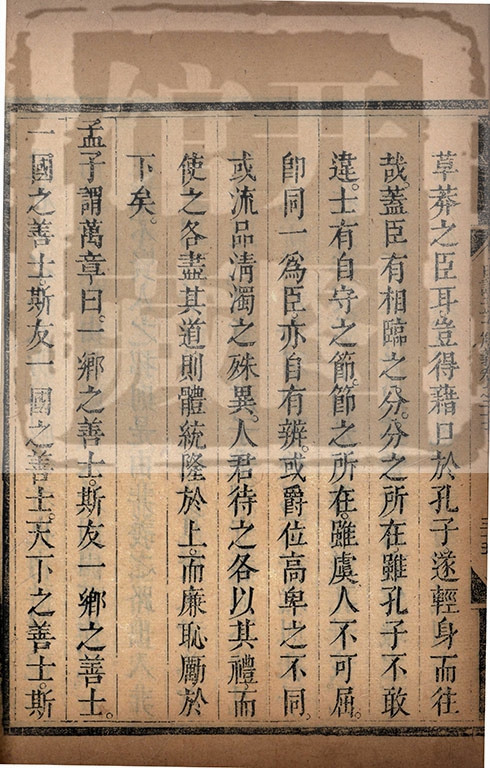 草莽之臣耳豈得藉口於孔子遂輕身而往
哉蓋臣有相臨之分。分之所在雖孔子不敢
違。士有自守之節。節之所在。雖虞人不可屈。
卽同一爲臣。亦自有辨。或爵位高卑之不同。
或流品清濁之殊異。人君待之各以其禮。而
使之各盡其道則體統隆於上。而廉恥勵於
下矣。
孟子謂萬章曰。一鄉之善士。斯友一鄉之善士。
一國之善士。斯友一國之善士。天下之善士。斯